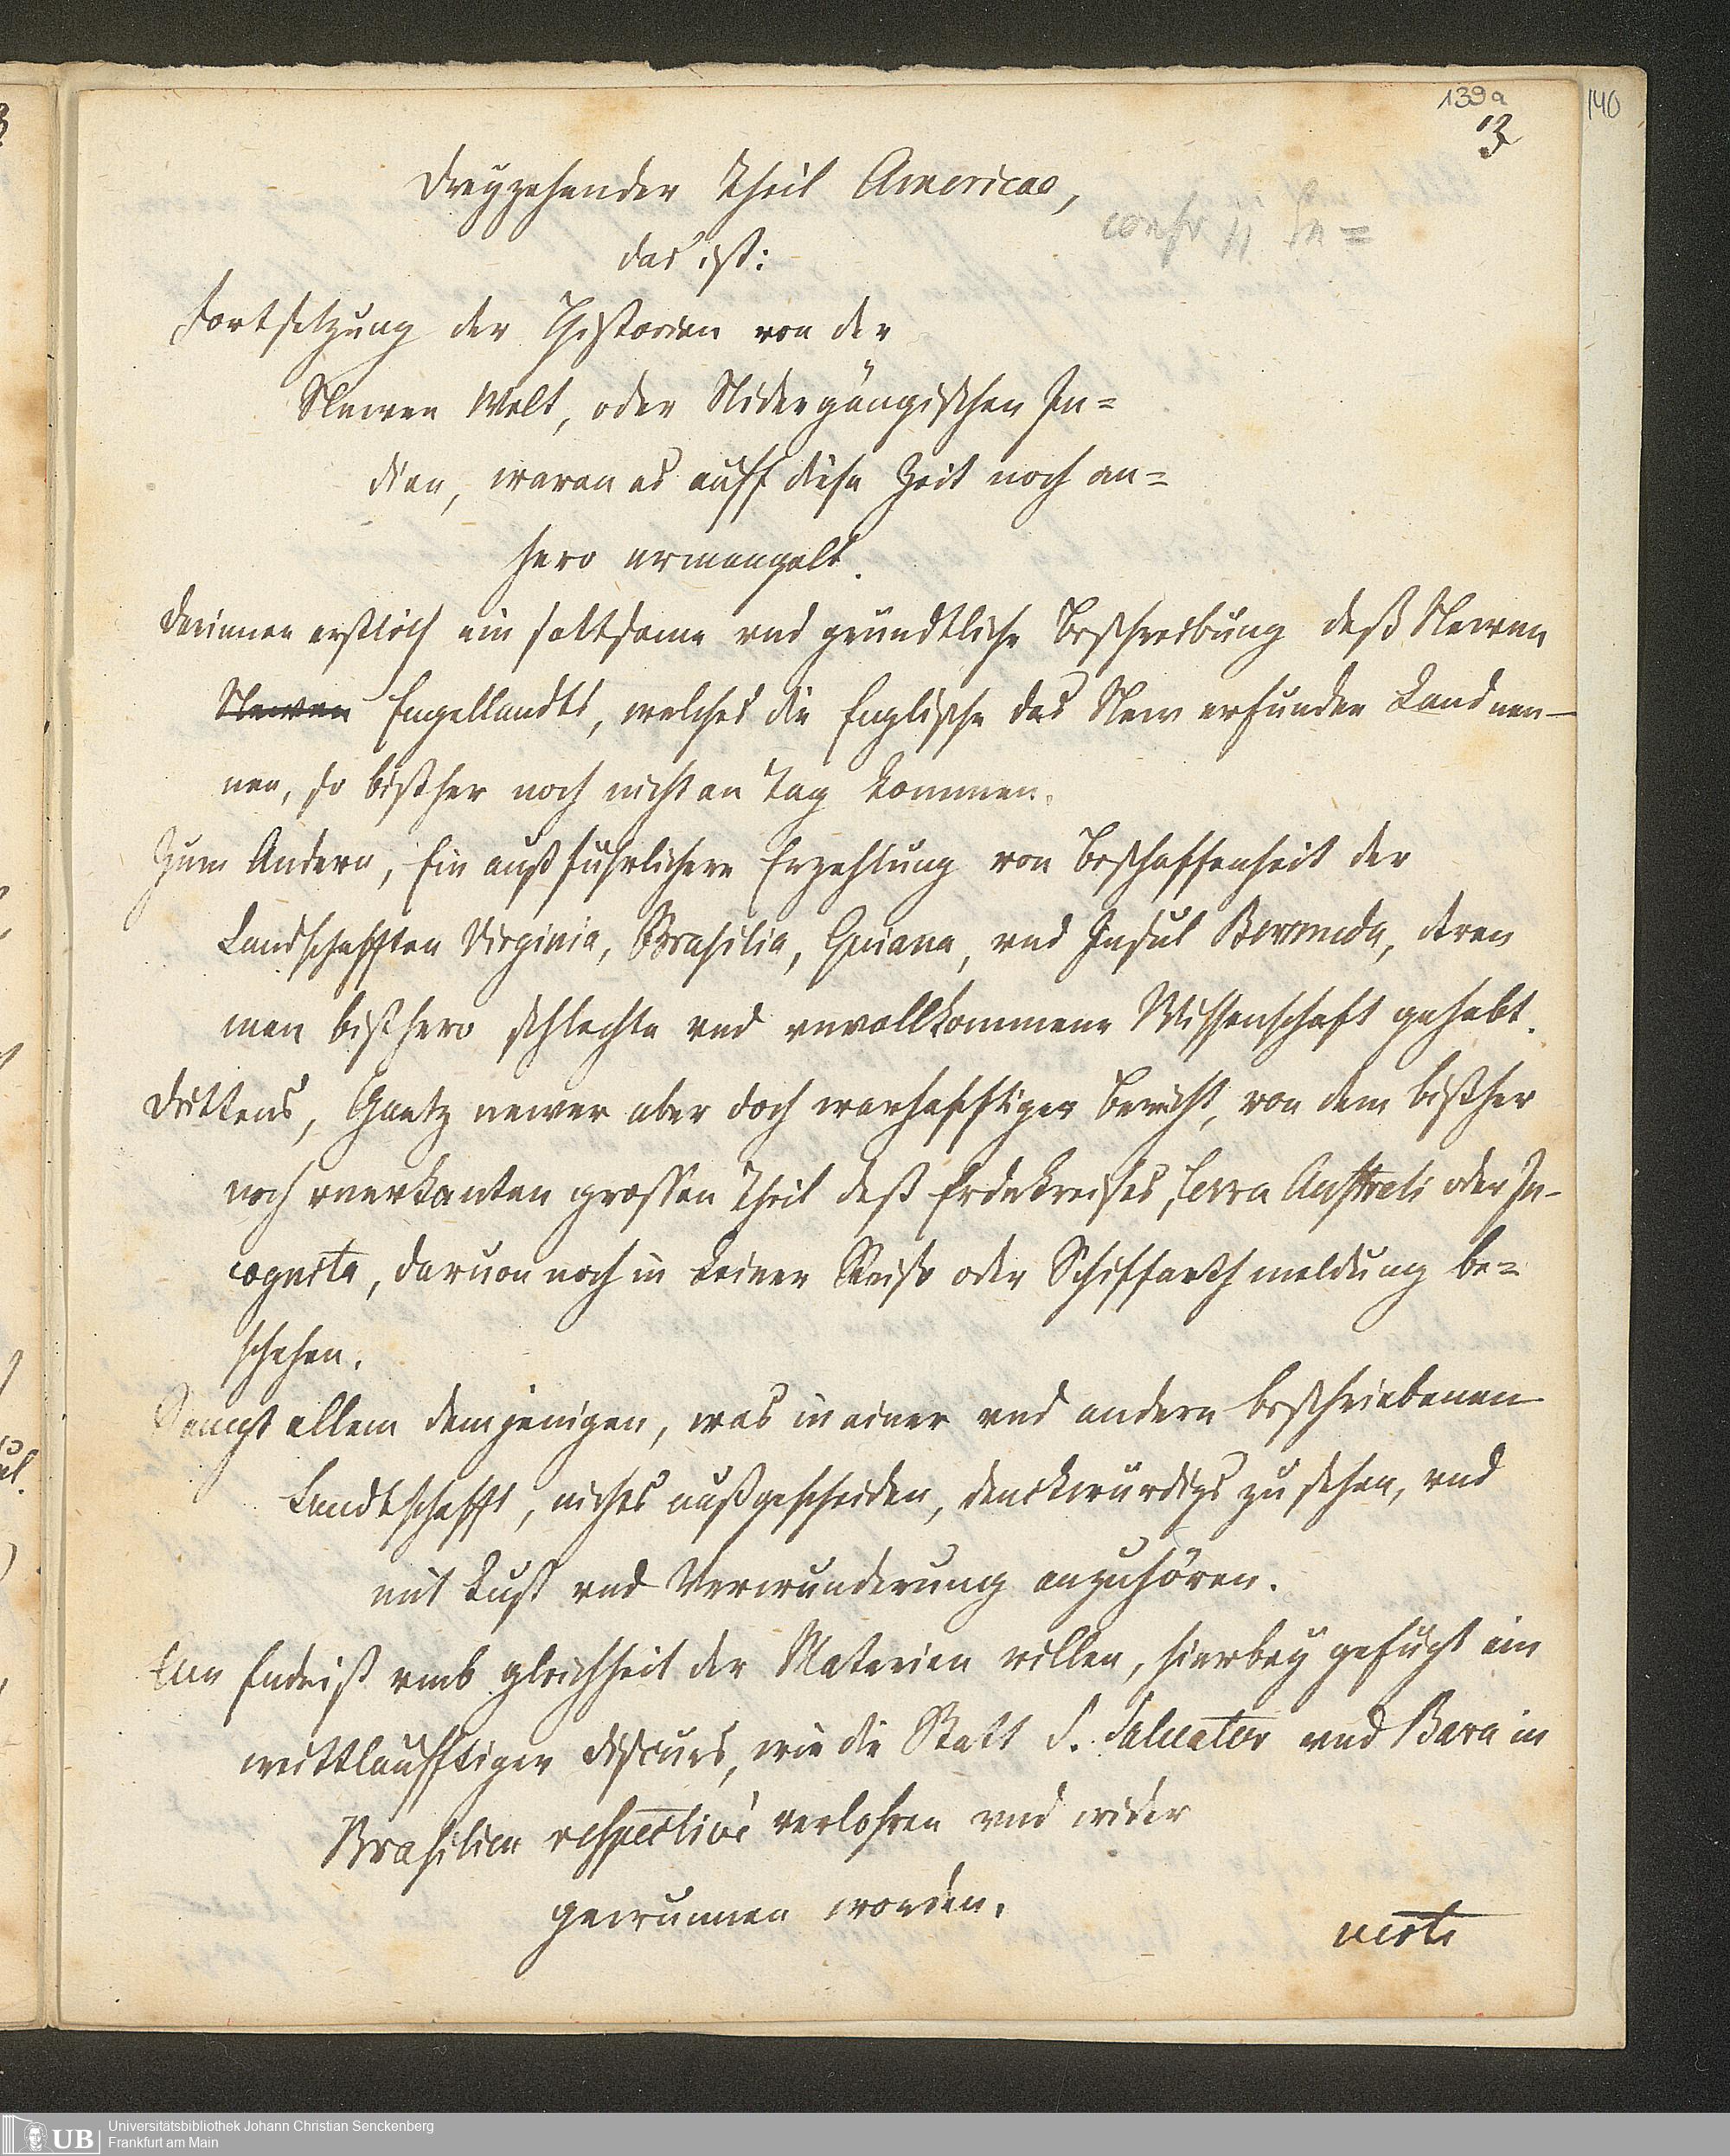 139a
140
3
Dreyzehender Theil Americae,
das ist:
Fortsetzung der Historien von der
Newen Welt, oder Nidergängischen In=
dien, waran es auff diese Zeit noch an=
hero ermangelt.
Darinnen erstlich ein saltsame vnd gründtliche Beschreibung deß Newen
Newen Engellandts, welches die Englische das New erfunden Land nen-
nen, so bißher noch nicht an Tag kommen.
Zum Andern, Ein außführlichere Erzehlung von Beschaffenheit der
Landschafften Virginia, Brasilia, Guiana, vnd Insul Bermuda, deren
man bißhero schlechte vnd vnvollkommene Wissenschaft gehabt.
Drittens, Gantz newer aber doch warhafftiger Bericht, von dem bißher
noch vnerkanten grossen Theil deß Erdekreises, Terra Australi oder In-
cognita, daruon noch in keiner Reiß oder Schiffarth meldung be=
schehen.
Sampt allem demjenigen, was in einer vnd andern beschriebenen
Landtschafft, nichts außgescheiden, denckwürdigs zu sehen, vnd
mit Lust vnd Verwunderung anzuhören.
Am Ende ist vmb gleichheit der Materien willen, hierbey gefügt ein
weittläufftiger Discurs, wie die Statt S. Saluator vnd Bara in
Brasilien respectivè verlohren vnd wider
gewunnen worden.
verte
UB
Universitätsbibliothek Johann Christian Senckenberg
Frankfurt am Main